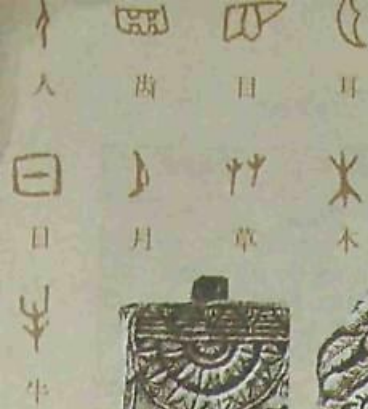 人 齿 目 耳
日 月 草 木
牛